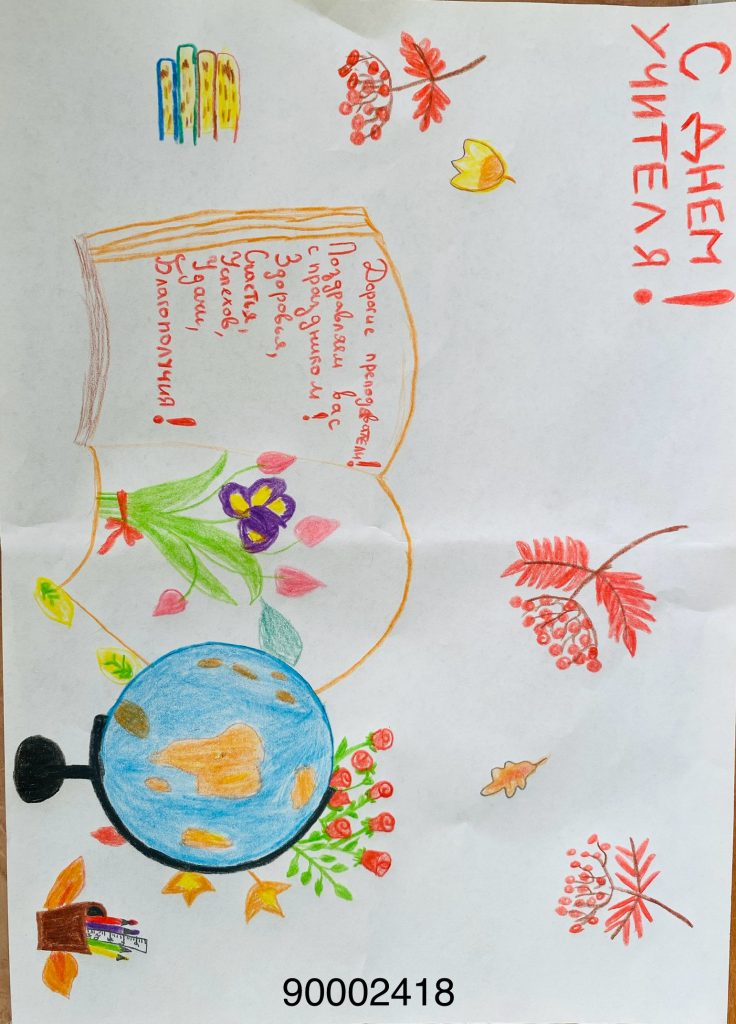 С ДНЕМ !
УЧИТЕЛЯ !
Дорогие преподователи!
Поздравляем вас
с праздником!
Здоровья,
Счастья,
Успехов,
Удачи,
Благополучия!
90002418